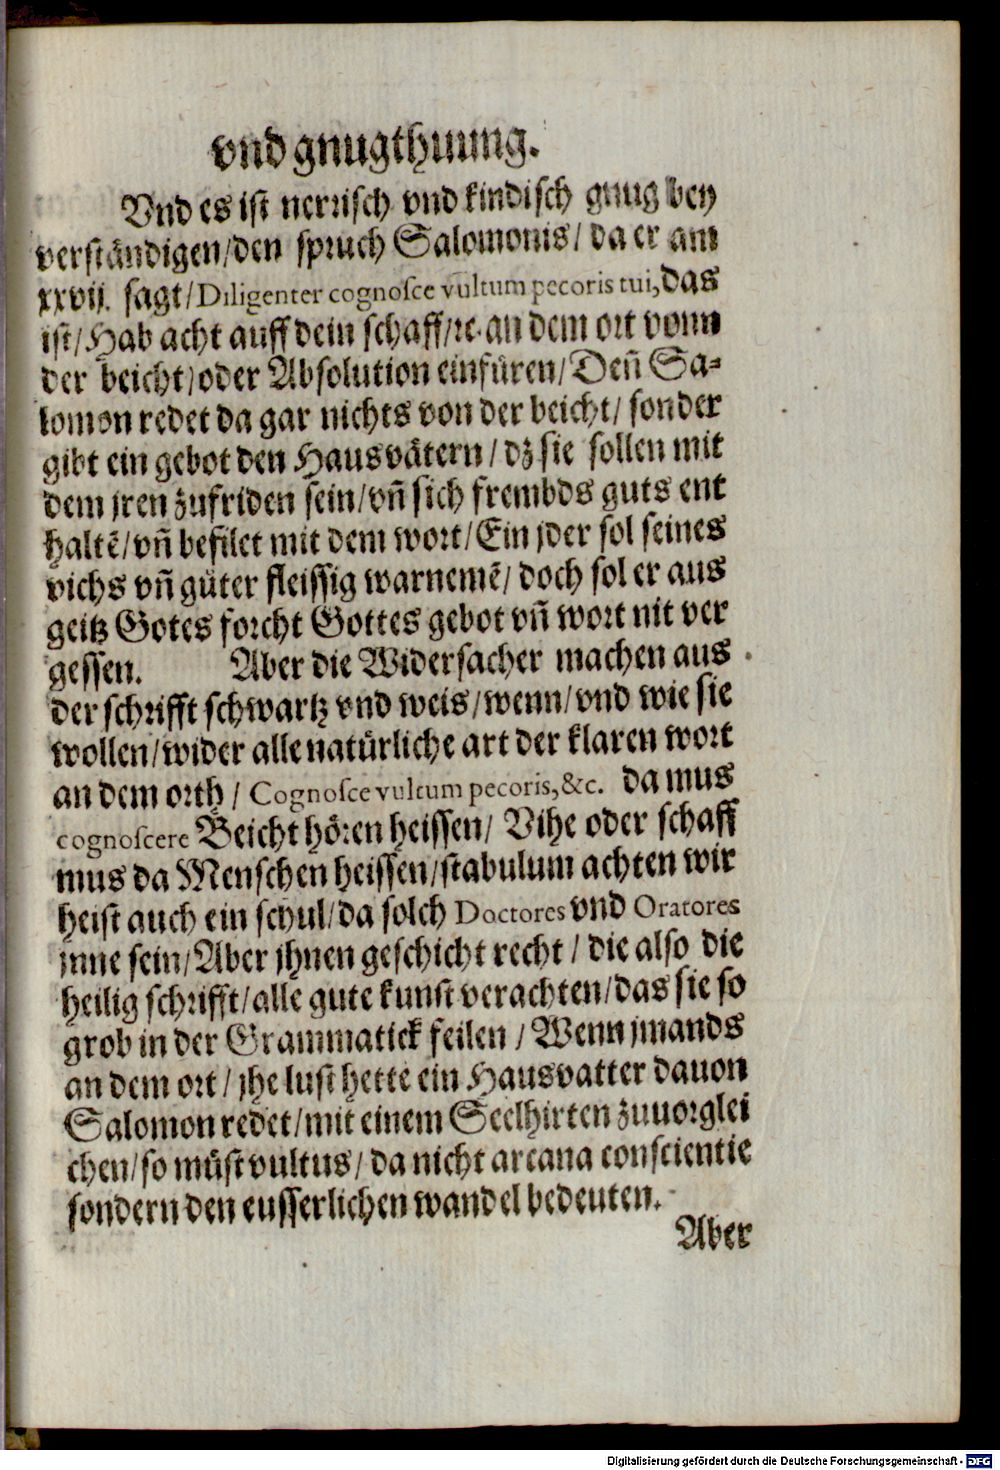 vnd gnugthuung.
Vnd es ist nerrisch vnd kindisch gnug bey
verständigen/den spruch Salomonis/ da er am
xxvij. sagt/Diligenter cognosce vultum pecoris tui,das
ist/Hab acht auff dein schaff/ꝛc.an dem ort vonn
der beicht/oder Absolution einfüren/Deñ Sa⸗
lomon redet da gar nichts von der beicht/ sonder
gibt ein gebot den Hausvätern/dz sie sollen mit
dem jren zufriden sein/vñ sich frembds guts ent
haltē/vñ befilet mit dem wort/Ein jder sol seines
vichs vñ güter fleissig warnemē/ doch sol er aus
geitz Gotes forcht Gottes gebot vñ wort nit ver
gessen. Aber die Widersacher machen aus
der schrifft schwartz vnd weis/wenn/vnd wie sie
wollen/wider alle natürliche art der klaren wort
an dem orth/ Cognosce vultum pecoris,&c. da mus
cognoscere Beicht hören heissen/ Vihe oder schaff
mus da Menschen heissen/stabulum achten wir
heist auch ein schul/da solch Doctores vnd Oratores
jnne sein/Aber jhnen geschicht recht/ die also die
heilig schrifft/alle gute kunst verachten/das sie so
grob in der Grammatick feilen/Wenn jmands
an dem ort/ jhe lust hette ein Hausvatter dauon
Salomon redet/mit einem Seelhirten zuuorglei
chen/so müst vultus/da nicht arcana conscientie
sondern den eusserlichen wandel bedeuten.
Aber
Digitalisierung gefördert durch die Deutsche Forschungsgemeinschaft - DFG